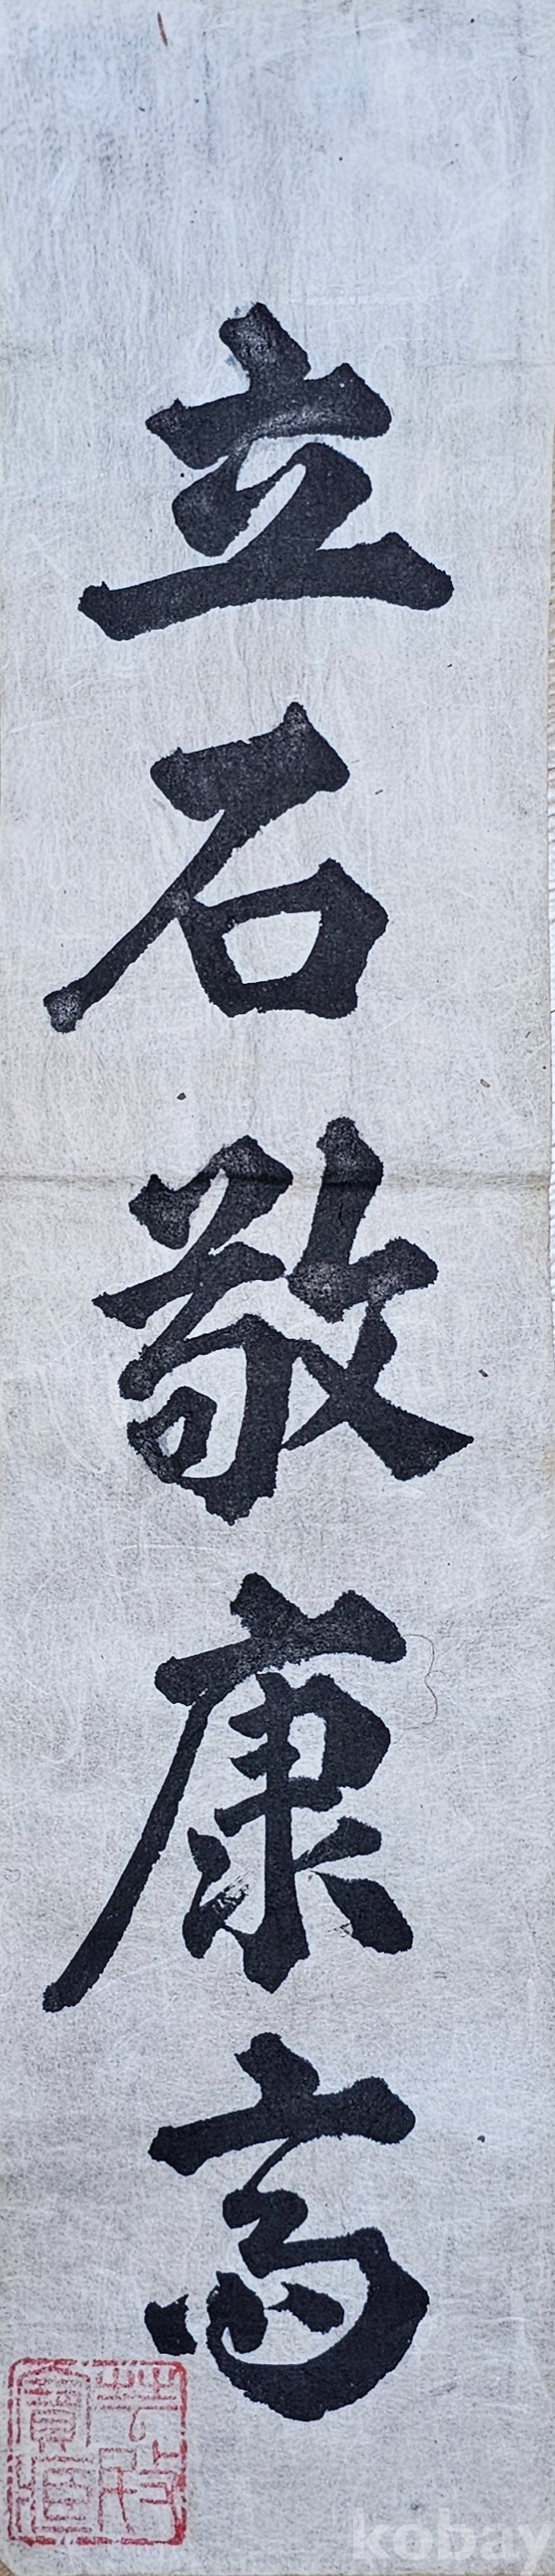 立石敬康高
kobay